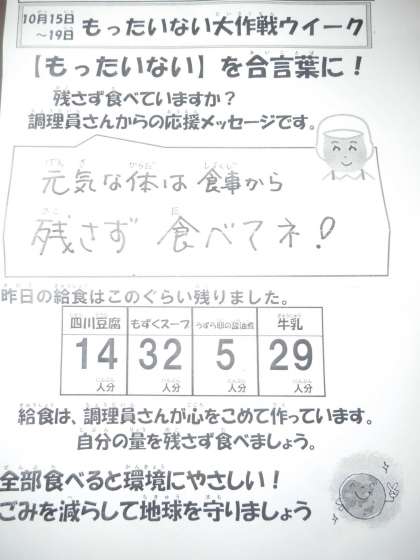 10月15日
～19日
もったいない大作戦ウイーク
【もったいない】を合言葉に！
残さず食べていますか？
調理員さんからの応援メッセージです。
元気な体は食事から
残さず食べてネ！
昨日の給食はこのぐらい残りました。
四川豆腐 もずくスープ うずら卵の醤油煮 牛乳
14 32 5 29
人分 人分 人分 人分
給食は、調理員さんが心をこめて作っています。
自分の量を残さず食べましょう。
全部食べると環境にやさしい！
ごみを減らして地球を守りましょう